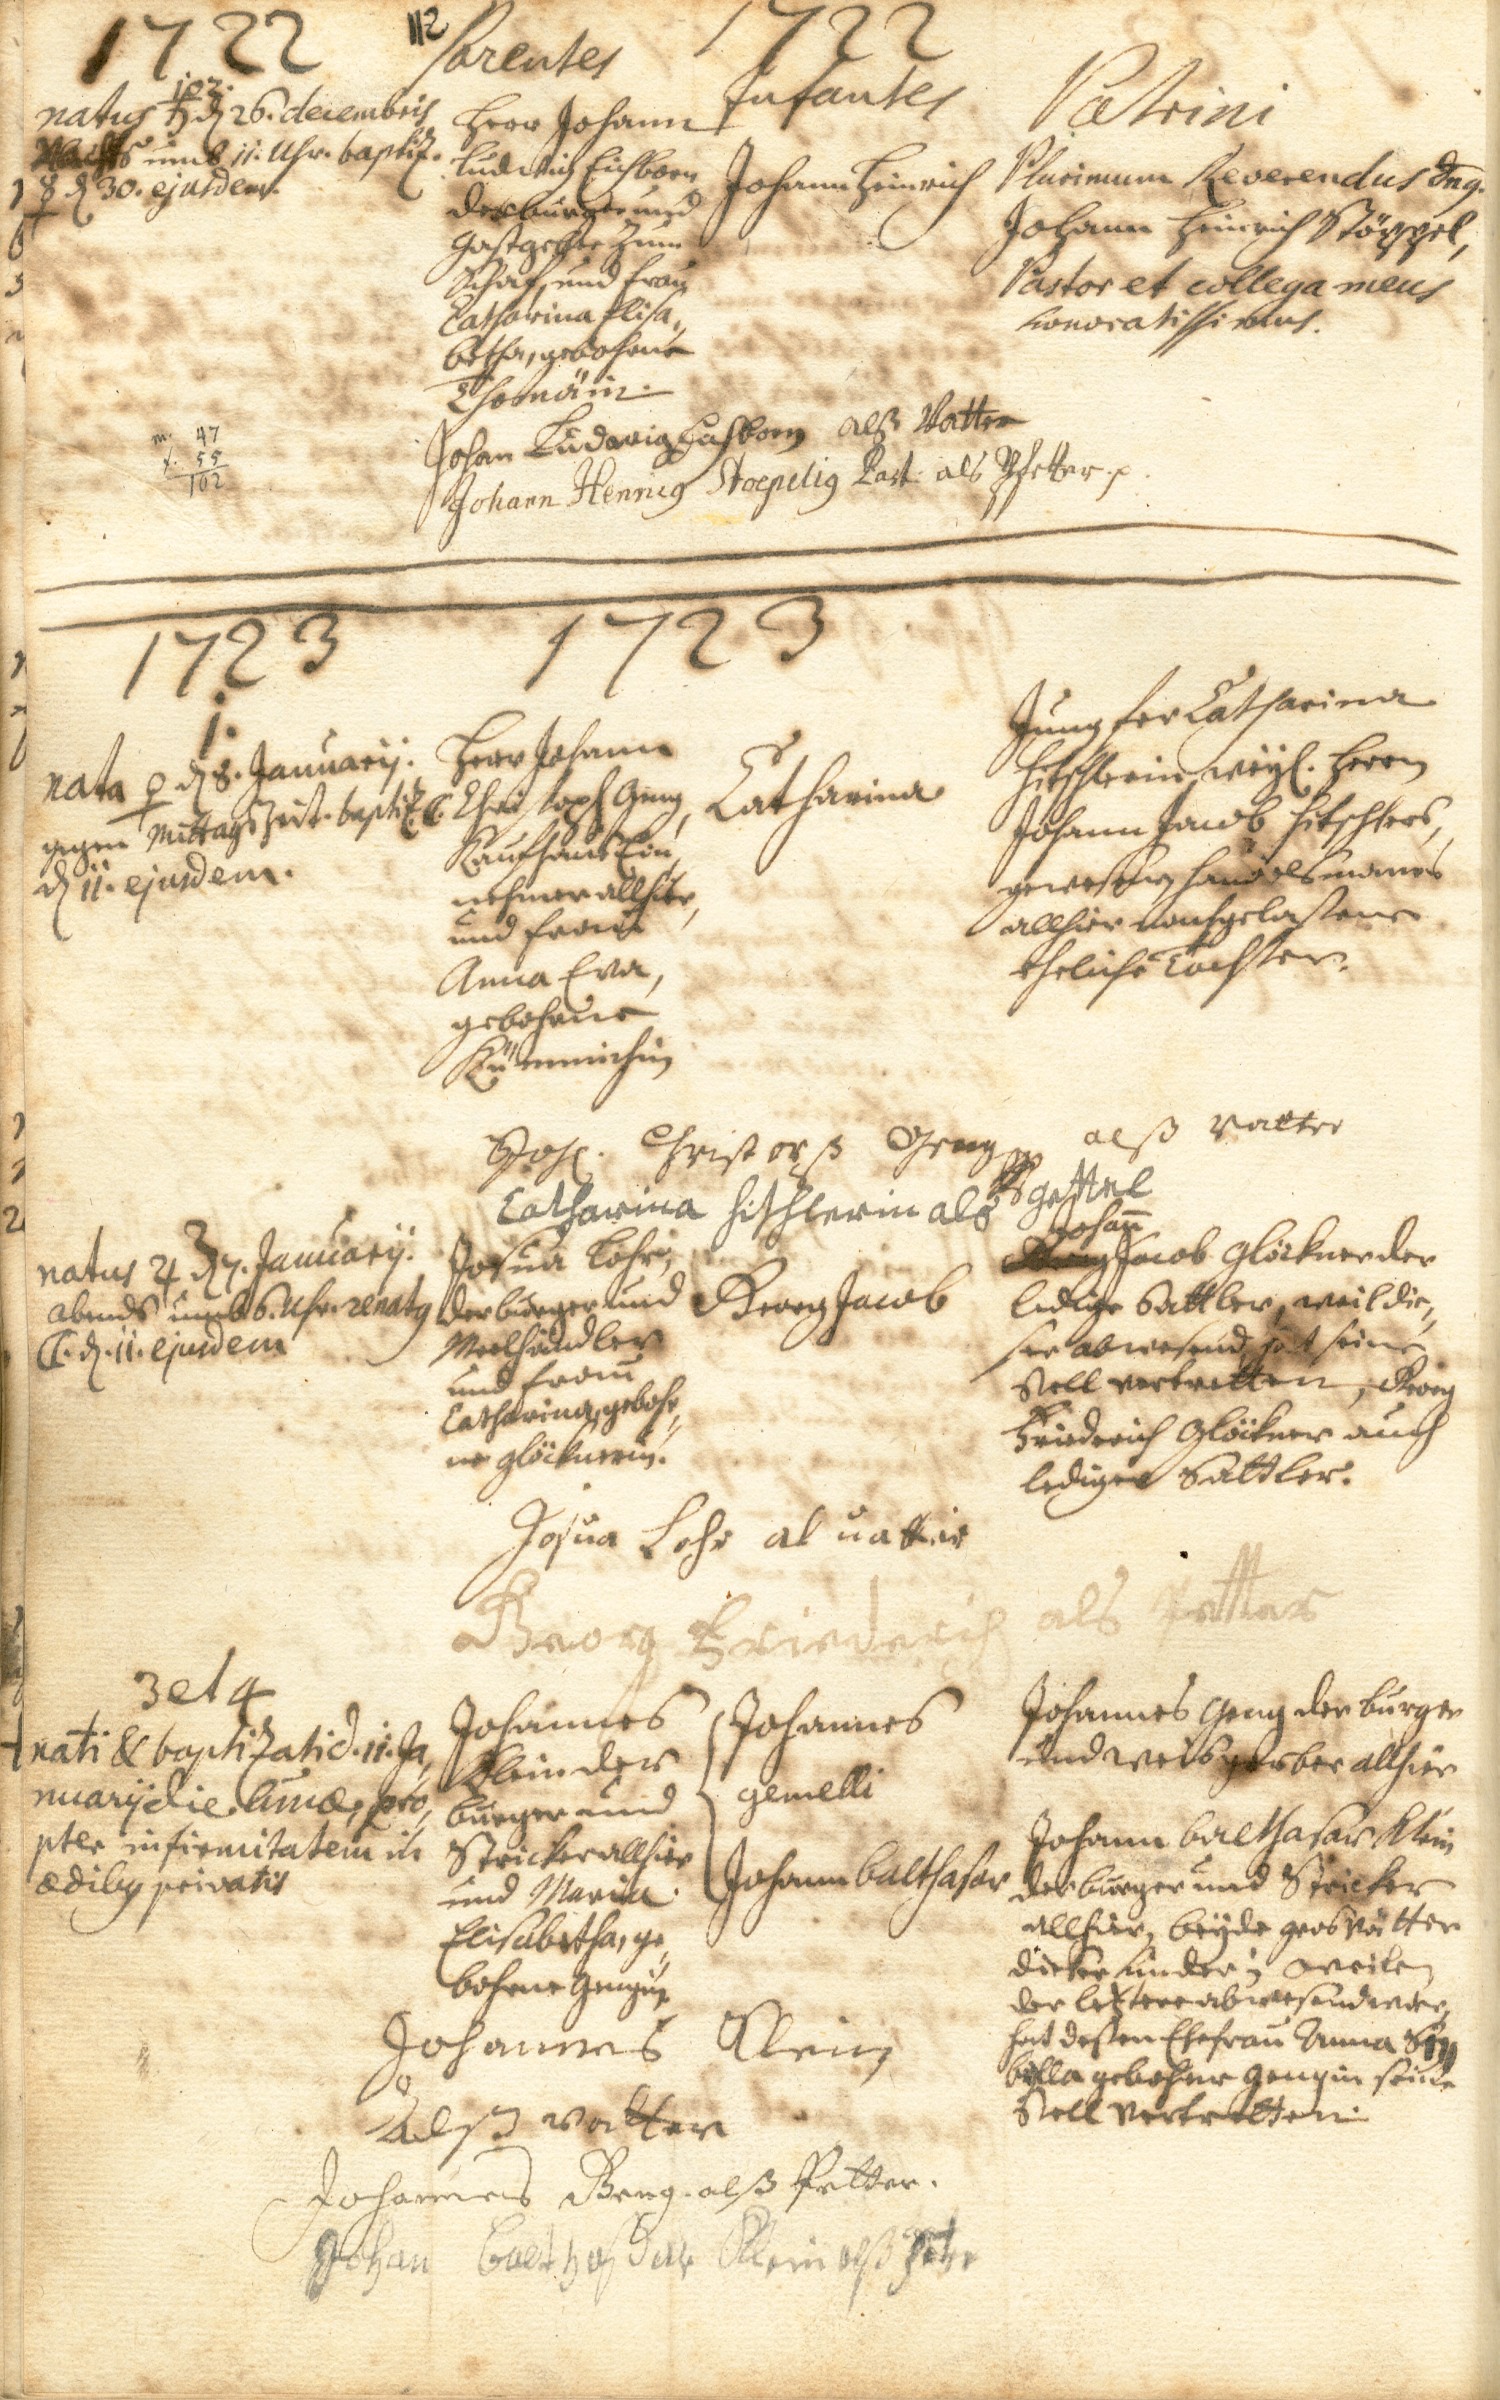 1722
112
Parentes
1722
Infantes
Patrini
102.
natus ♄ d. 26. decembris
Nachts umb 11. Uhr. baptiz.
☿ d. 30. ejusdem.
Herr Johann
Ludwig Eichborn
der burger und
Gastgeber zum
Schaf, und Frau
Catharina Elisa,,
betha, gebohrne
Thomäin.
Johann Heinrich
Plurimum Reverendus Dng.
Johann Heinrich Stöppel,
Pastor et collega meus
honoratissimus.
m. 47
f. 55
102
Johan Ludwig Eichborn alß Vatter
Johann Henricg Stoepelig Past. als Pfetter.
1723
1723
1.
nata ♀ d. 8. Januarij.
gegen Mittagszeit. baptiz. ☾.
d. 11. ejusdem.
Herr Johann
Christoph Geng,
Kaufhaus Ein,,
nehmer allhier,
und Frau
Anna Eva,
gebohrne
Kümmichin
Catharina
Jungfer Catharina
Hitschlerin, weyl. Herrn
Johann Jacob Hitschlers,
gewesenen Handelsmanns
allhier nachgelassene
eheliche Tochter.
Joh. Christoph Geng alß vatter
Catharina Hitschlerin als gettel
natus ♃ d. 7. Januarij.
abends umb 6. Uhr. renatg
☾. d. 11. ejusdem
Josua Lohr,
der burger und
Meelhändler
und Frau
Catharina, gebohr,,
ne Glöcknerin.
Georg Jacob
Johann
Jacob Glöckner der
ledige Sattler, weil die,,
ser abwesend, hat seine
Stell vertretten, Georg
Friederich Glöckner auch
lediger Sattler.
Josua Lohr al vatter
Georg Friederich als pettter
3 et 4
nati & baptizati d. 11. Ja,,
nuarij die lunæ, pro,,
pter infirmitatem in
ædibg privatis
Johannes
Klein der
burger und
Stricker allhier
und Maria
Elisabetha, ge,,
bohrne Gengin
Johannes
gemelli
Johann balthasar
Johannes Geng der burger
und weisgerber allhier
Johann balthasar Klein
der burger und Stricker
allhier, beyde grosvätter
dieser kinder; weilen
der letztere abwesend war,
hat dessen Ehefrau Anna Sy,,
billa gebohrne Gengin seine
Stell vertretten.
Johannes Klein
Alß vatter
Johannes Geng. alß Petter.
Johan balthasar Klein alß